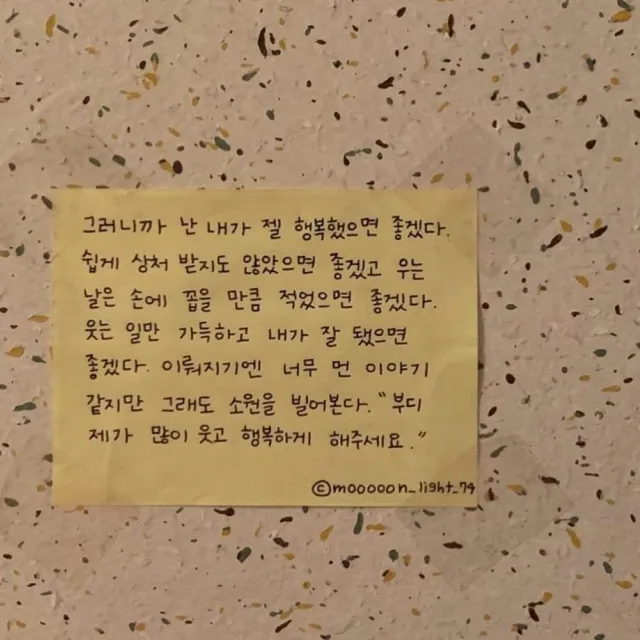 그러니까 난 내가 젤 행복했으면 좋겠다.
쉽게 상처 받지도 않았으면 좋겠고 우는
날은 손에 꼽을 만큼 적었으면 좋겠다.
웃는 일만 가득하고 내가 잘 됐으면
좋겠다. 이뤄지기엔 너무 먼 이야기
같지만 그래도 소원을 빌어본다. "부디
제가 많이 웃고 행복하게 해주세요."
©mooooon_light_74